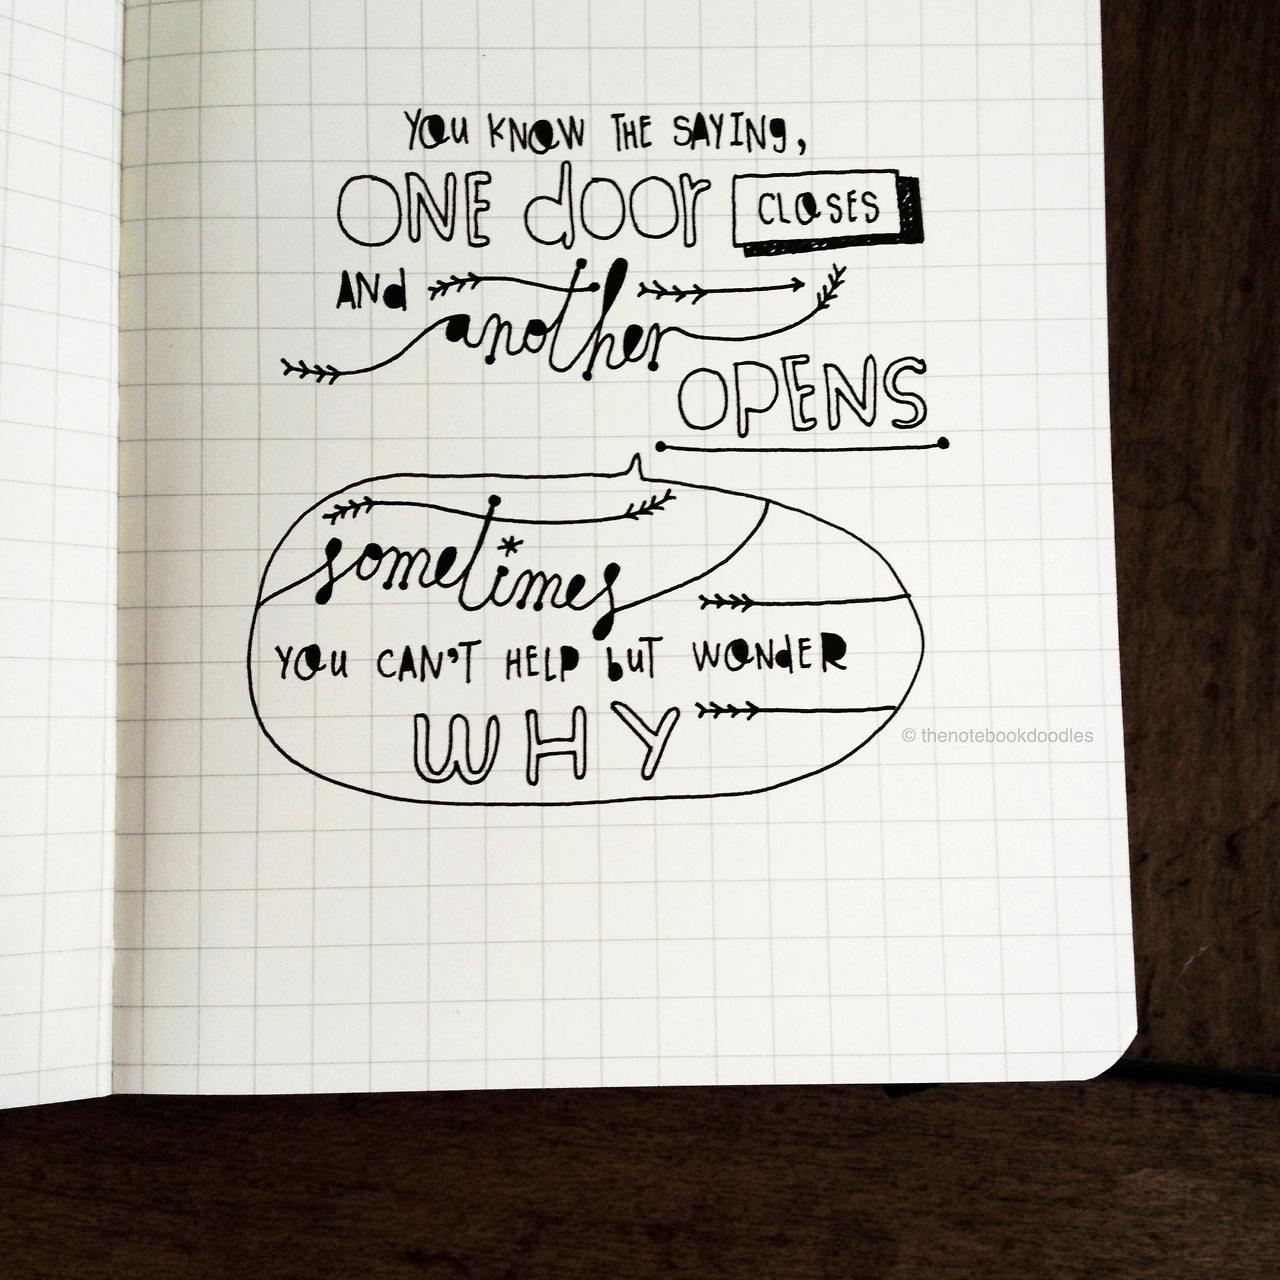 YOU KNOW THE SAYING,
ONE dOOr CLOSES
ANd
another
OPENS
sometimes
YOU CAN'T HELP bUT WONdER
WHY
© thenotebookdoodles